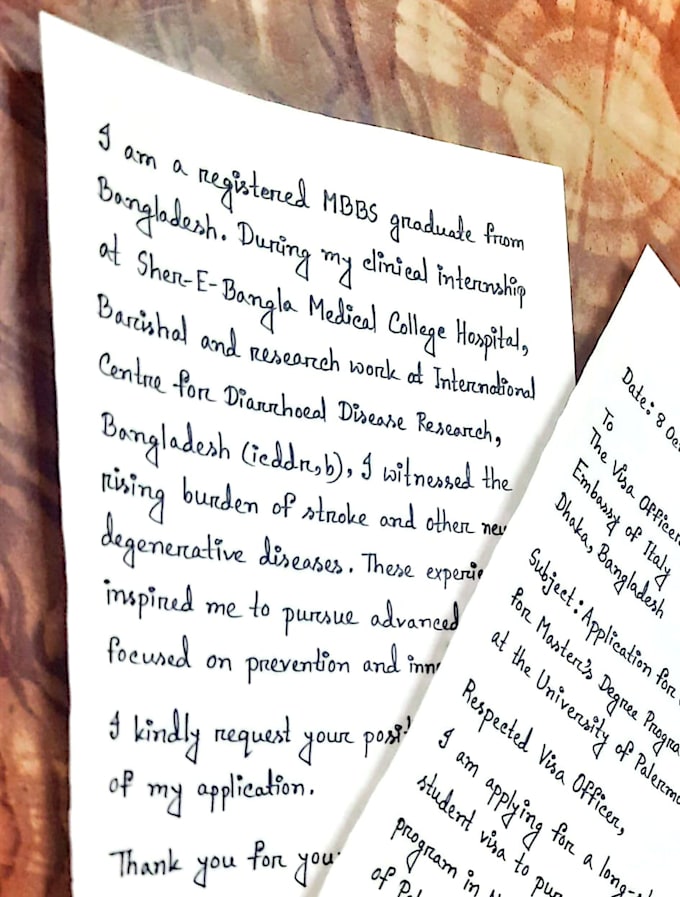 I am a registered MBBS graduate from
Bangladesh. During my clinical internship
at Sher-E-Bangla Medical College Hospital,
Barishal and research work at International
Centre for Diarrhoeal Disease Research,
Bangladesh (icddr,b), I witnessed the
rising burden of stroke and other
degenerative diseases. These
inspired me to pursue advanced
focused on prevention and
I kindly request your
of my application.
Thank you for
Date: 8
To
The Visa Officer
Embassy of Italy
Dhaka, Bangladesh
Subject: Application for
for Master's Degree
at the University of Palermo
Respected Visa Officer,
I am applying for a long-
student visa to
program in
of